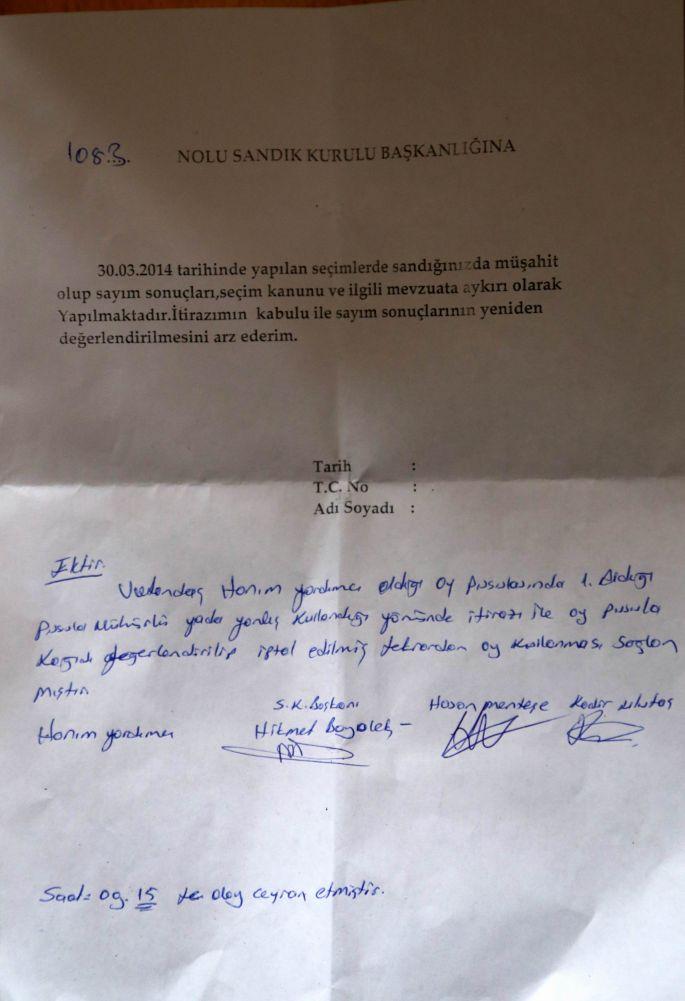 1083. NOLU SANDIK KURULU BAŞKANLIĞINA
30.03.2014 tarihinde yapılan seçimlerde sandığınızda müşahit
olup sayım sonuçları,seçim kanunu ve ilgili mevzuata aykırı olarak
Yapılmaktadır.İtirazımın kabulu ile sayım sonuçlarının yeniden
değerlendirilmesini arz ederim.
Tarih :
T.C. No :
Adı Soyadı :
Ektir.
Vatandaş Hanım yardımcı aldığı oy pusulasında 1. Aldığı
pusula Mühürlü yada yanlış kullandığı yönünde itirazı ile oy pusula
Kağıdı değerlendirilip iptal edilmiş tekrardan oy kullanması sağlan
mıştır
S.K. Başkanı Hasan menteşe Kadir ulutaş
Hanım yardımcı Hikmet
Saat= 09.15 de olay ceyran etmiştir.